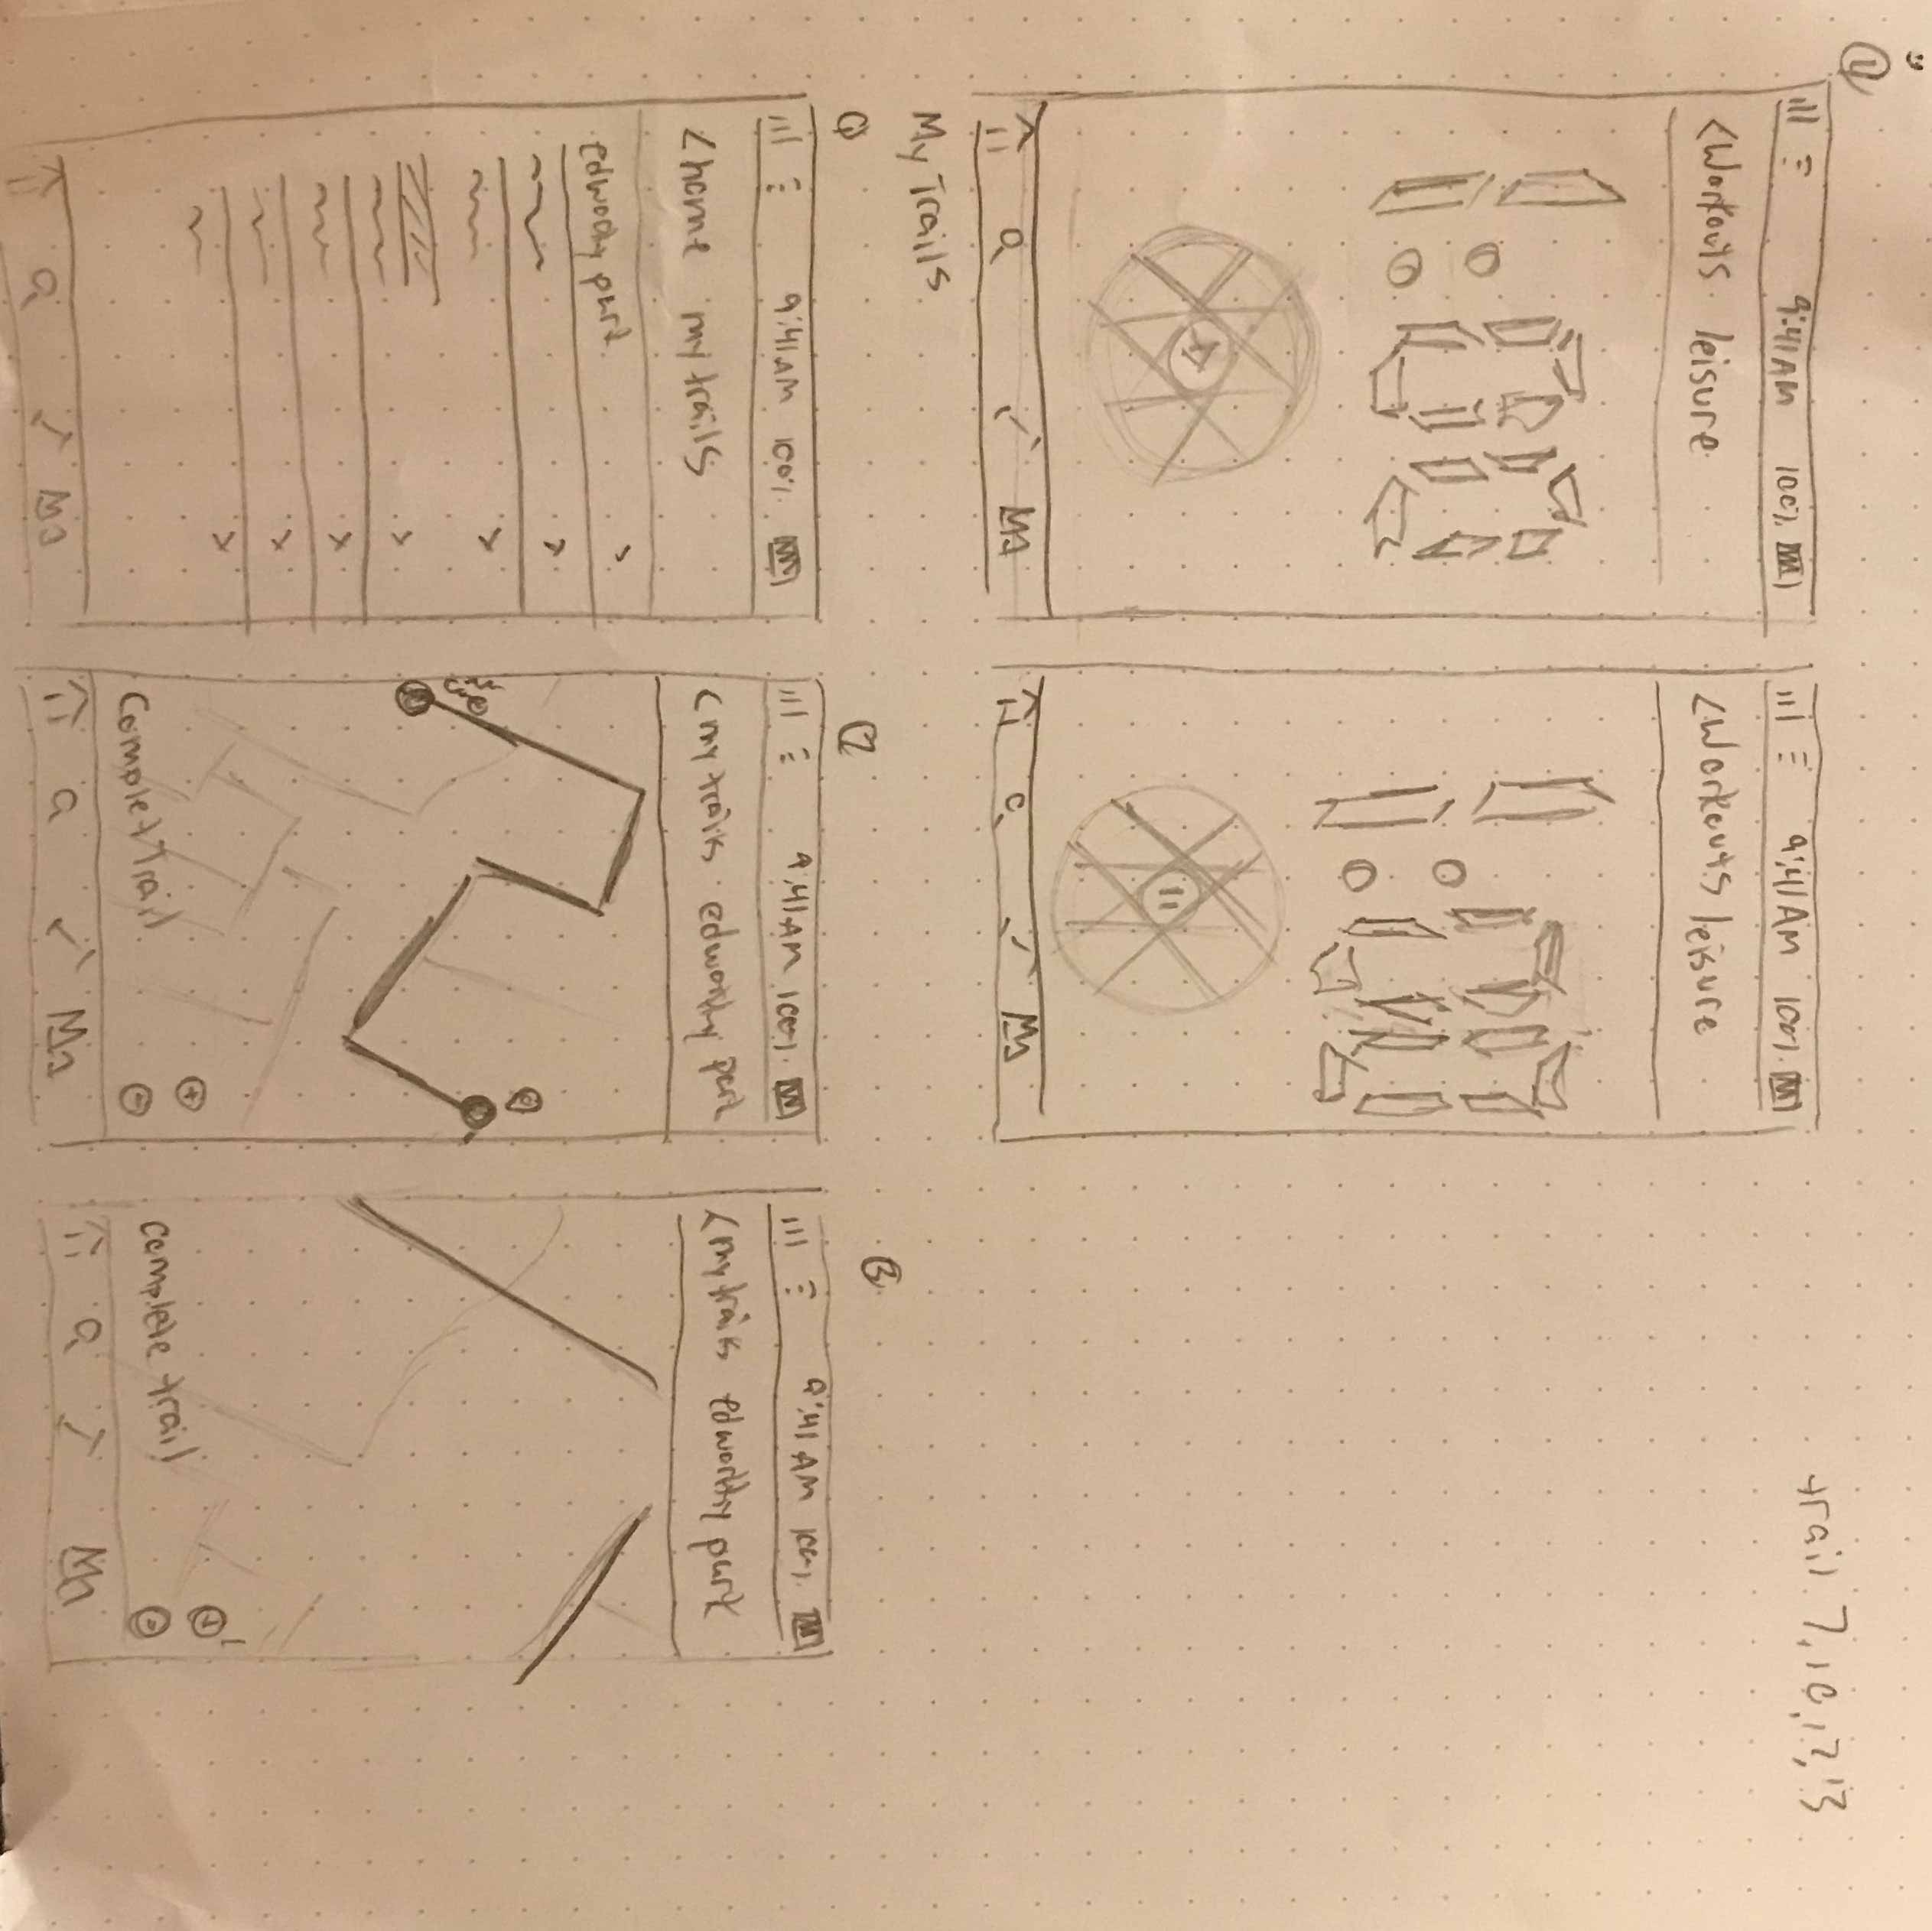 4
9:41AM 100%
<Workouts leisure
1:00
9:41AM 100%
<Workouts leisure
trail 7, 10, 12, 13
My Trails
1
9:41AM 100%
<home my trails
edworthy park
2
9:41AM 100%
<my trails edworthy park
Complet Trail
3
9:41AM 100%
<my trails edworthy park
complete trail